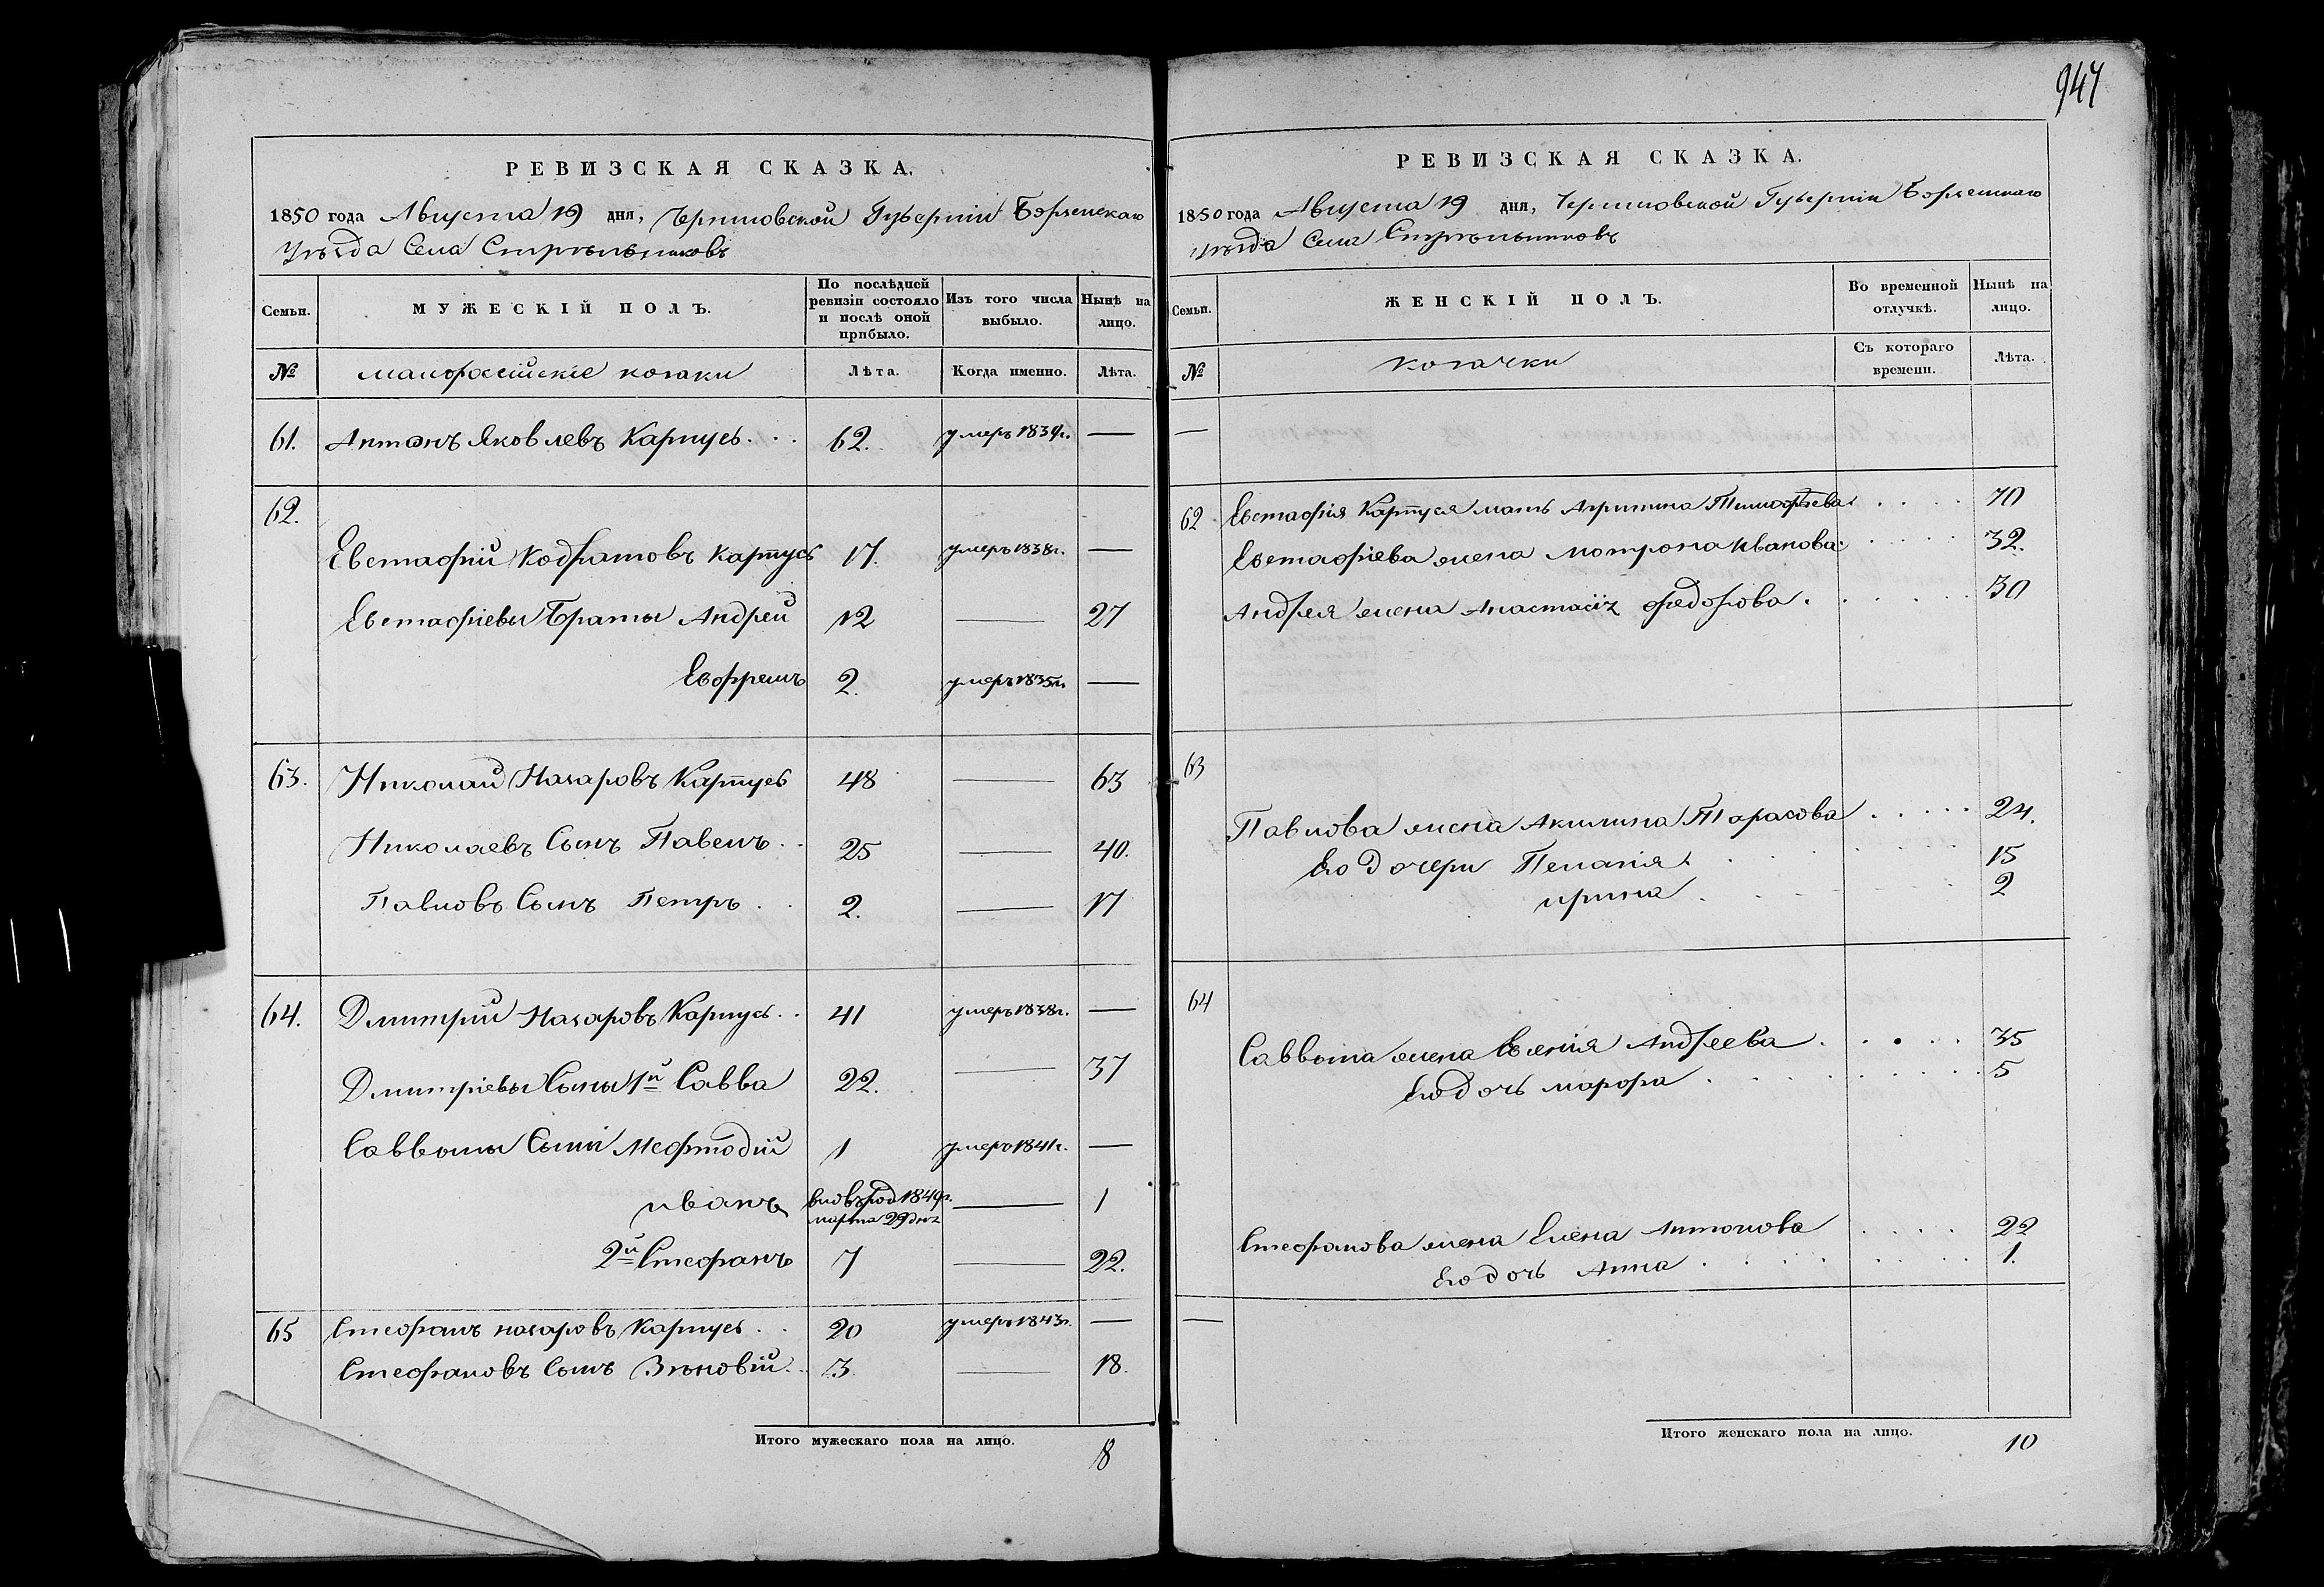 947
РЕВИЗСКАЯ СКАЗКА.
1850 года Августа 19 дня, Черниговской Губерніи Борзенскаго
Уѣзда Села Стрѣльниковъ
Семьи. МУЖЕСКІЙ ПОЛЪ. По послѣдней ревизіи состояло и послѣ оной прибыло. Изъ того числа выбыло. Нынѣ на лицо.
№ малороссійскіе козаки Лѣта. Когда именно. Лѣта.
61. Антонъ Яковлевъ Карпусь 62. умеръ 1839г. —
62.
Евстафій Кодратовъ Карпусь 17. умеръ 1838г. —
Евстафіевы Браты Андрей 12 — 27
Евфремъ 2. умеръ 1835г. —
63. Николай Назаровъ Карпусь 48 — 63
Николаевъ Сынъ Павелъ 25 — 40.
Павловъ Сынъ Петръ 2. — 17
64. Дмитрій Назаровъ Карпусь 41 умеръ 1838г. —
Дмитріевы Сыны 1й Савва 22. — 37
Саввыны Сыны Мефтодій 1 умеръ 1841г. —
иванъ вновь род 1849г. марта 29 дня — 1
2й Стефанъ 7 — 22.
65 Стефанъ назаровъ Карпусь 20 умеръ 1843г. —
Стефановъ Сынъ Зѣновій 3. — 18.
Итого мужескаго пола на лицо. 8
РЕВИЗСКАЯ СКАЗКА.
1850 года Августа 19 дня, Черниговской Губерніи Борзенскаго
Уѣзда Села Стрѣльниковъ
Семьи. ЖЕНСКІЙ ПОЛЪ. Во временной отлучкѣ. Нынѣ на лицо.
№ козачки Съ котораго времени. Лѣта.
—
62 Евстафія Карпуся мать Агрипина Тимофѣева 70
Евстафіева жена Мотрона Иванова 32.
Андрея жена Анастасія федорова 30
63
Павлова жена Акилина Тарасова 24.
Его дочери Пелагія 15
ирина 2
64
Саввына жена Евгенія Андреева 35
Его дочь марфа 5
Стефанова жена Елена Антонова 22
Его дочь Анна 1.
—
Итого женскаго пола на лицо. 10